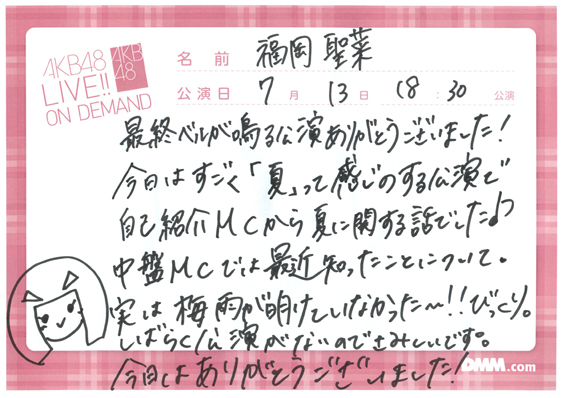 AKB48
LIVE!!
ON DEMAND
AKB
48
名前 福岡 聖菜
公演日 7月 13日 18:30 公演
最終ベルが鳴る公演ありがとうございました!
今日はすごく「夏」って感じのする公演で
自己紹介MCから夏に関する話でした♪
中盤MCでは最近知ったことについて。
実は梅雨が明けていなかった〜!!びっくり。
しばらく公演がないのでさみしいです。
今日はありがとうございました!
DMM.com